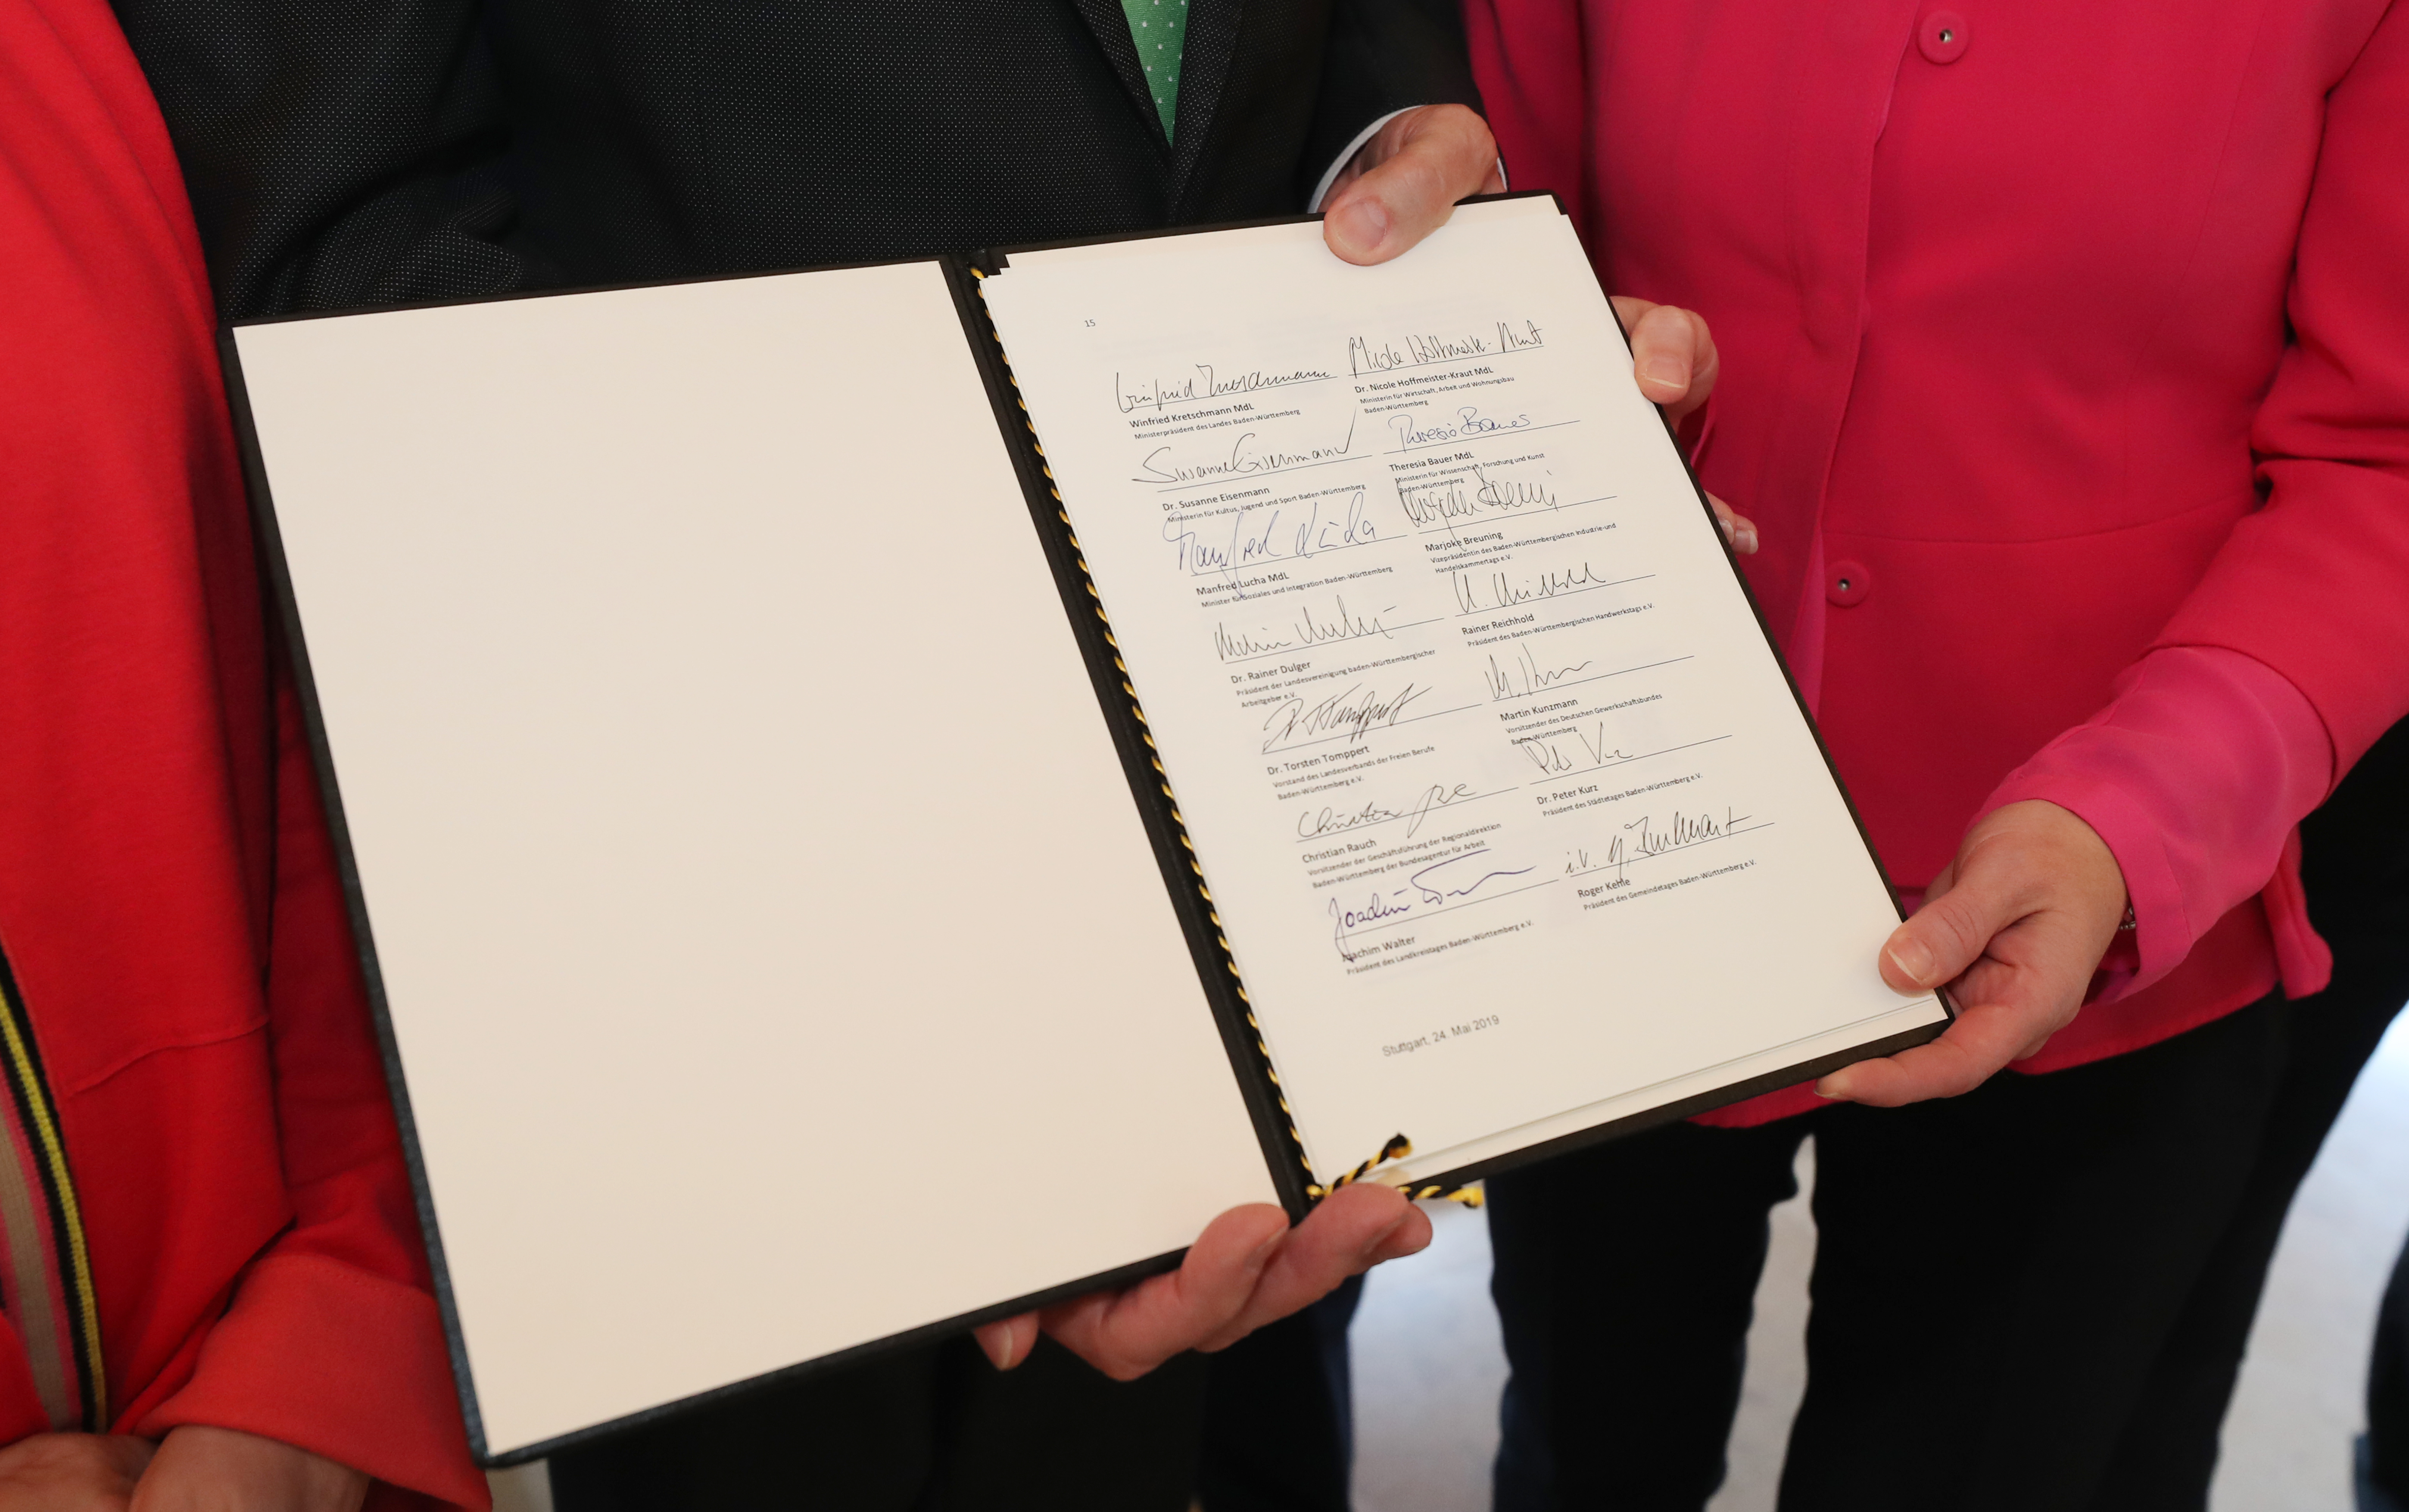 15
Winfried Kretschmann
Winfried Kretschmann MdL
Ministerpräsident des Landes Baden-Württemberg
Nicole Hoffmeister-Kraut
Dr. Nicole Hoffmeister-Kraut MdL
Ministerin für Wirtschaft, Arbeit und Wohnungsbau
Baden-Württemberg
Susanne Eisenmann
Dr. Susanne Eisenmann
Ministerin für Kultus, Jugend und Sport Baden-Württemberg
Theresia Bauer
Theresia Bauer MdL
Ministerin für Wissenschaft, Forschung und Kunst
Baden-Württemberg
Manfred Lucha
Manfred Lucha MdL
Minister für Soziales und Integration Baden-Württemberg
Marjoke Breuning
Vizepräsidentin des Baden-Württembergischen Industrie-und
Handelskammertags e.V.
Dr. Rainer Dulger
Präsident der Landesvereinigung baden-Württembergischer
Arbeitgeber e.V.
Rainer Reichhold
Präsident des Baden-Württembergischen Handwerkstags e.V.
Dr. Torsten Tomppert
Vorstand des Landesverbands der Freien Berufe
Baden-Württemberg e.V.
Martin Kunzmann
Vorsitzender des Deutschen Gewerkschaftsbundes
Baden-Württemberg
Christian Rauch
Vorsitzender der Geschäftsführung der Regionaldirektion
Baden-Württemberg der Bundesagentur für Arbeit
Dr. Peter Kurz
Präsident des Städtetages Baden-Württemberg e.V.
Joachim
Joachim Walter
Präsident des Landkreistages Baden-Württemberg e.V.
i.V.
Roger Kehle
Präsident des Gemeindetages Baden-Württemberg e.V.
Stuttgart, 24. Mai 2019